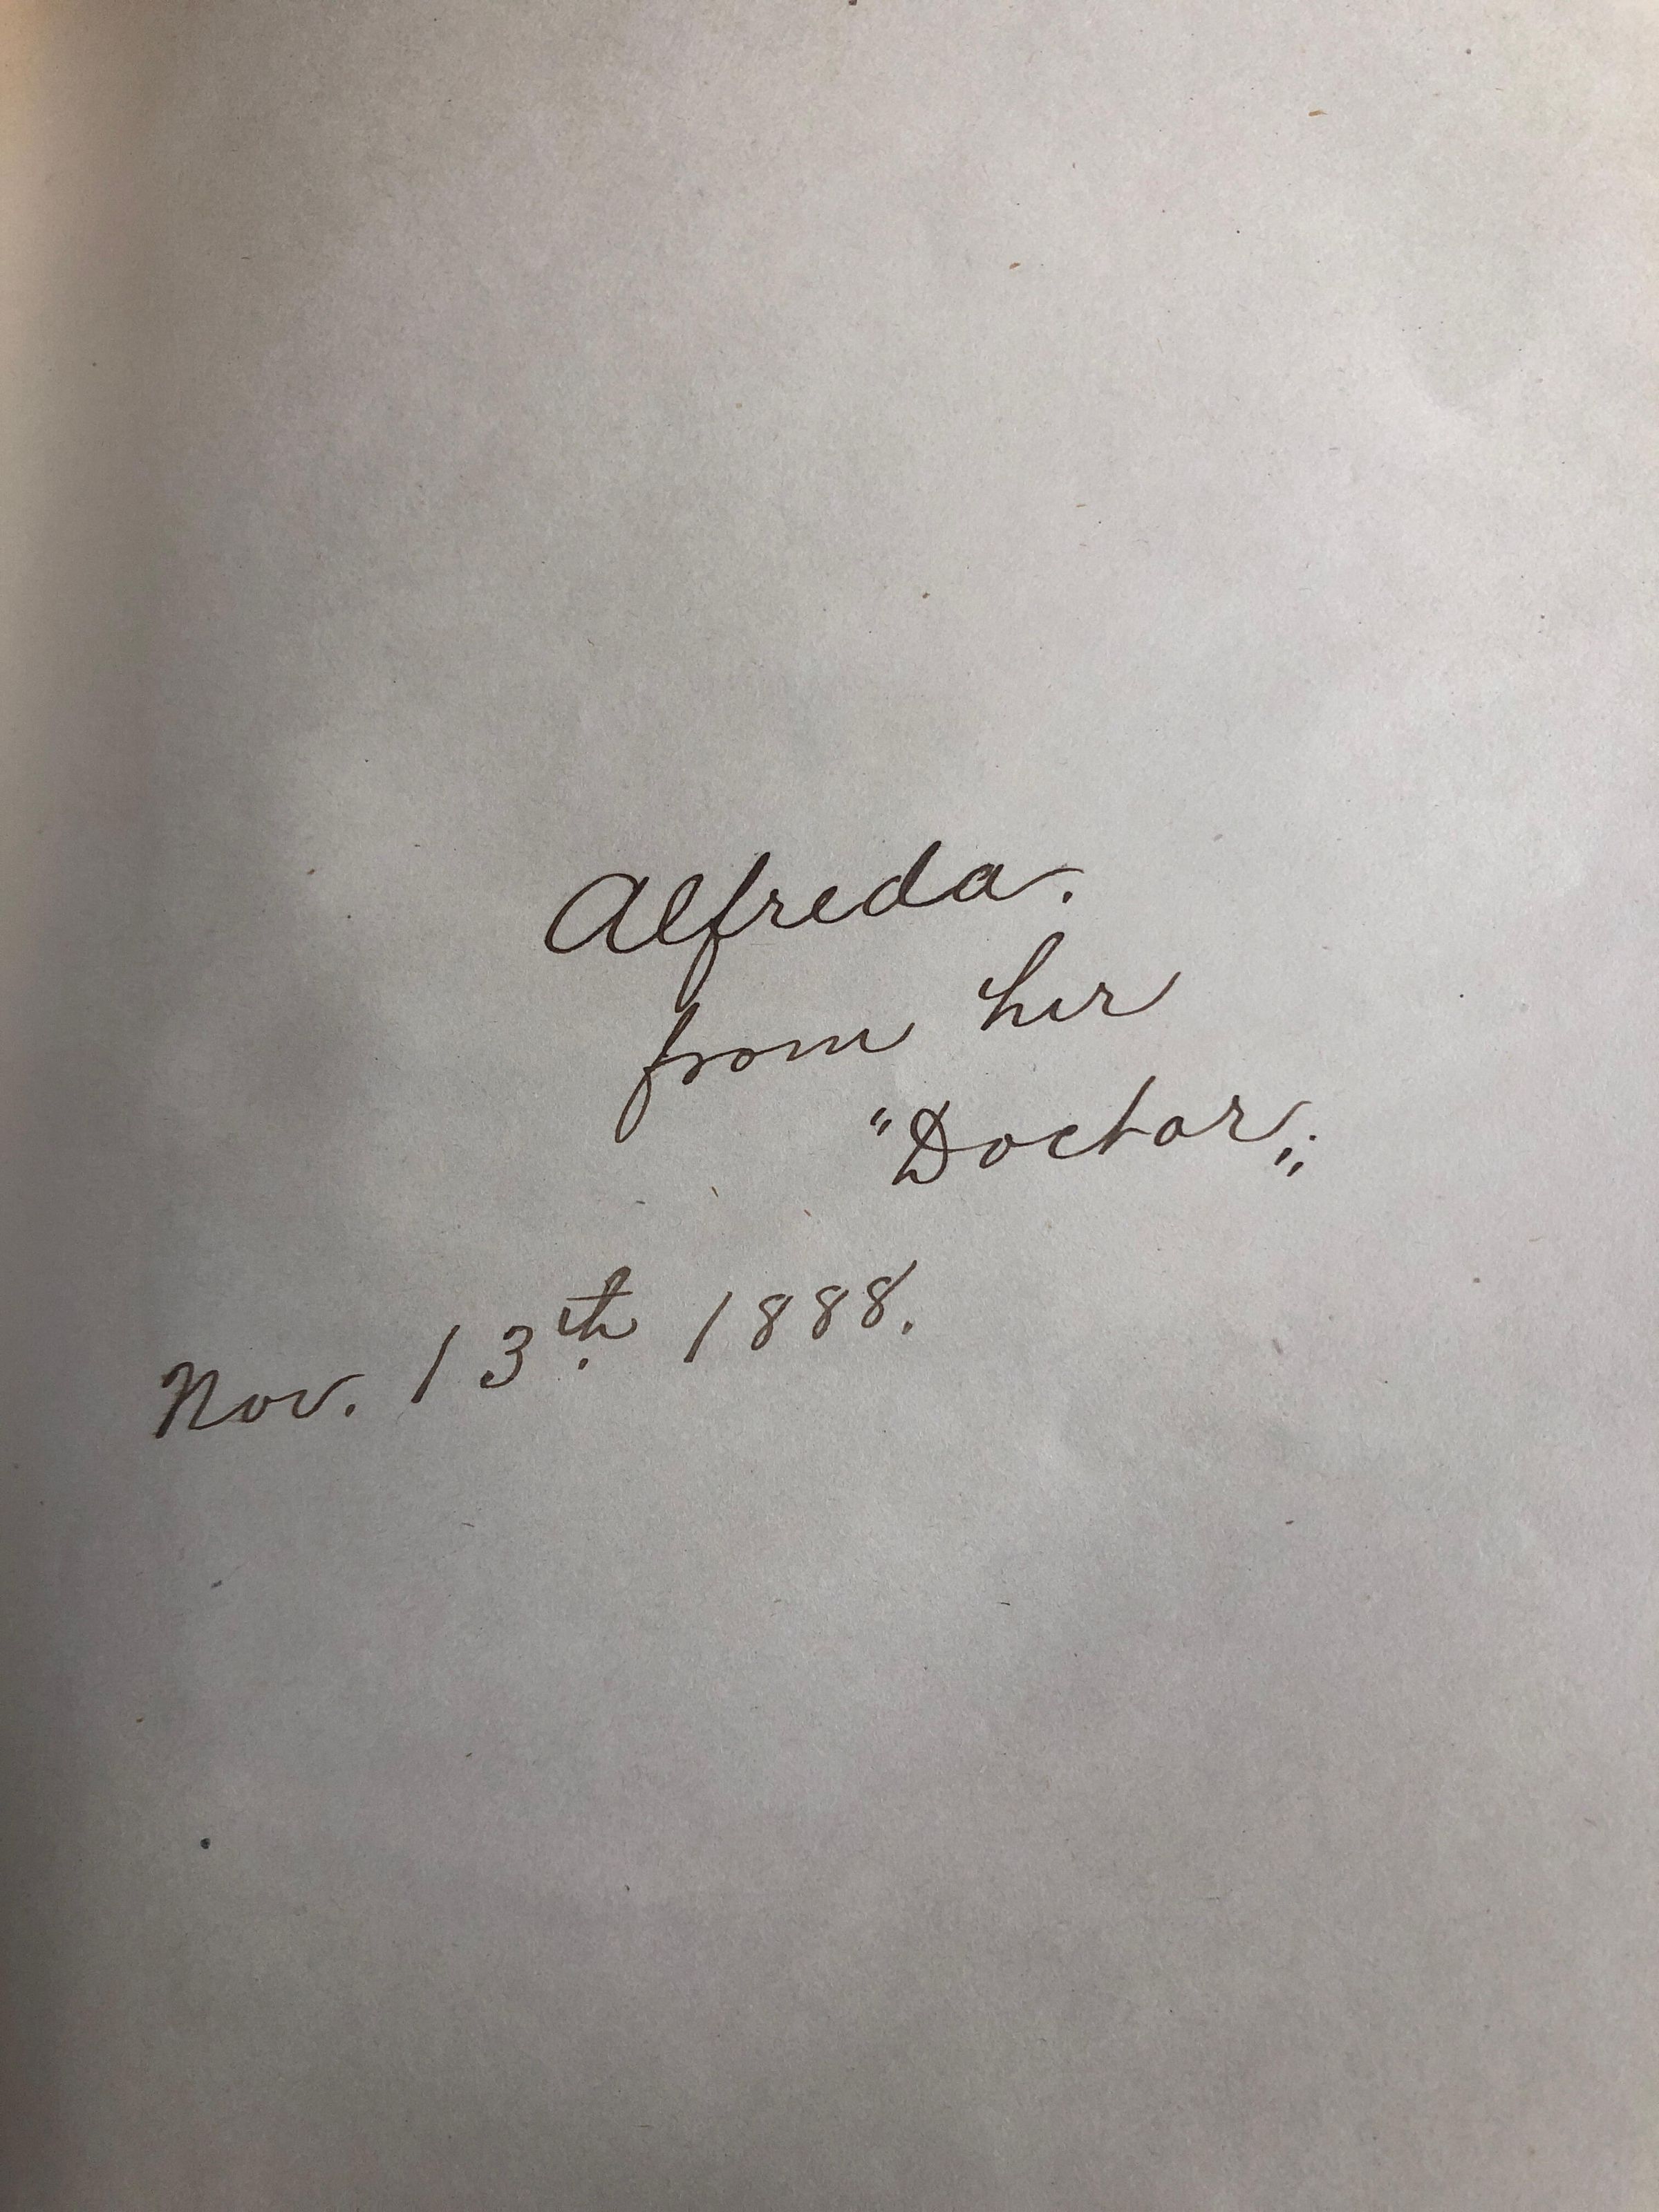 Alfreda.
from her
"Doctor„.
Nov. 13th. 1888.